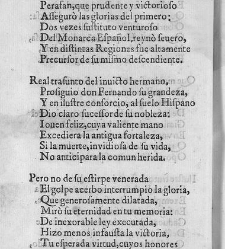 Perafan, que prudente y victorioso
Asseguró las glorias del primero;
Dos vezes sustituto venturoso
Del Monarca Español, reynó seuero,
Y en distintas Regiones fue altamente
Precursor de su mismo descendiente.
Real trasunto del inuicto hermano,
Prosiguio don Fernando su grandeza,
Y en ilustre consorcio, al suelo Hispano
Dio claro sucessor de su nobleza:
Iouen feliz, cuya valiente mano
Excediera la antigua fortaleza,
Si la muerte, inuidiosa de su vida,
No anticipara la comun herida.
Pero no de su estirpe venerada
El golpe acerbo interrumpio la gloria,
Que generosamente dilatada,
Mirò su eternidad en tu memoria:
De inexorable ley executada,
Hizo menos infausta la victoria,
Tu esperada virtud, cuyos honores